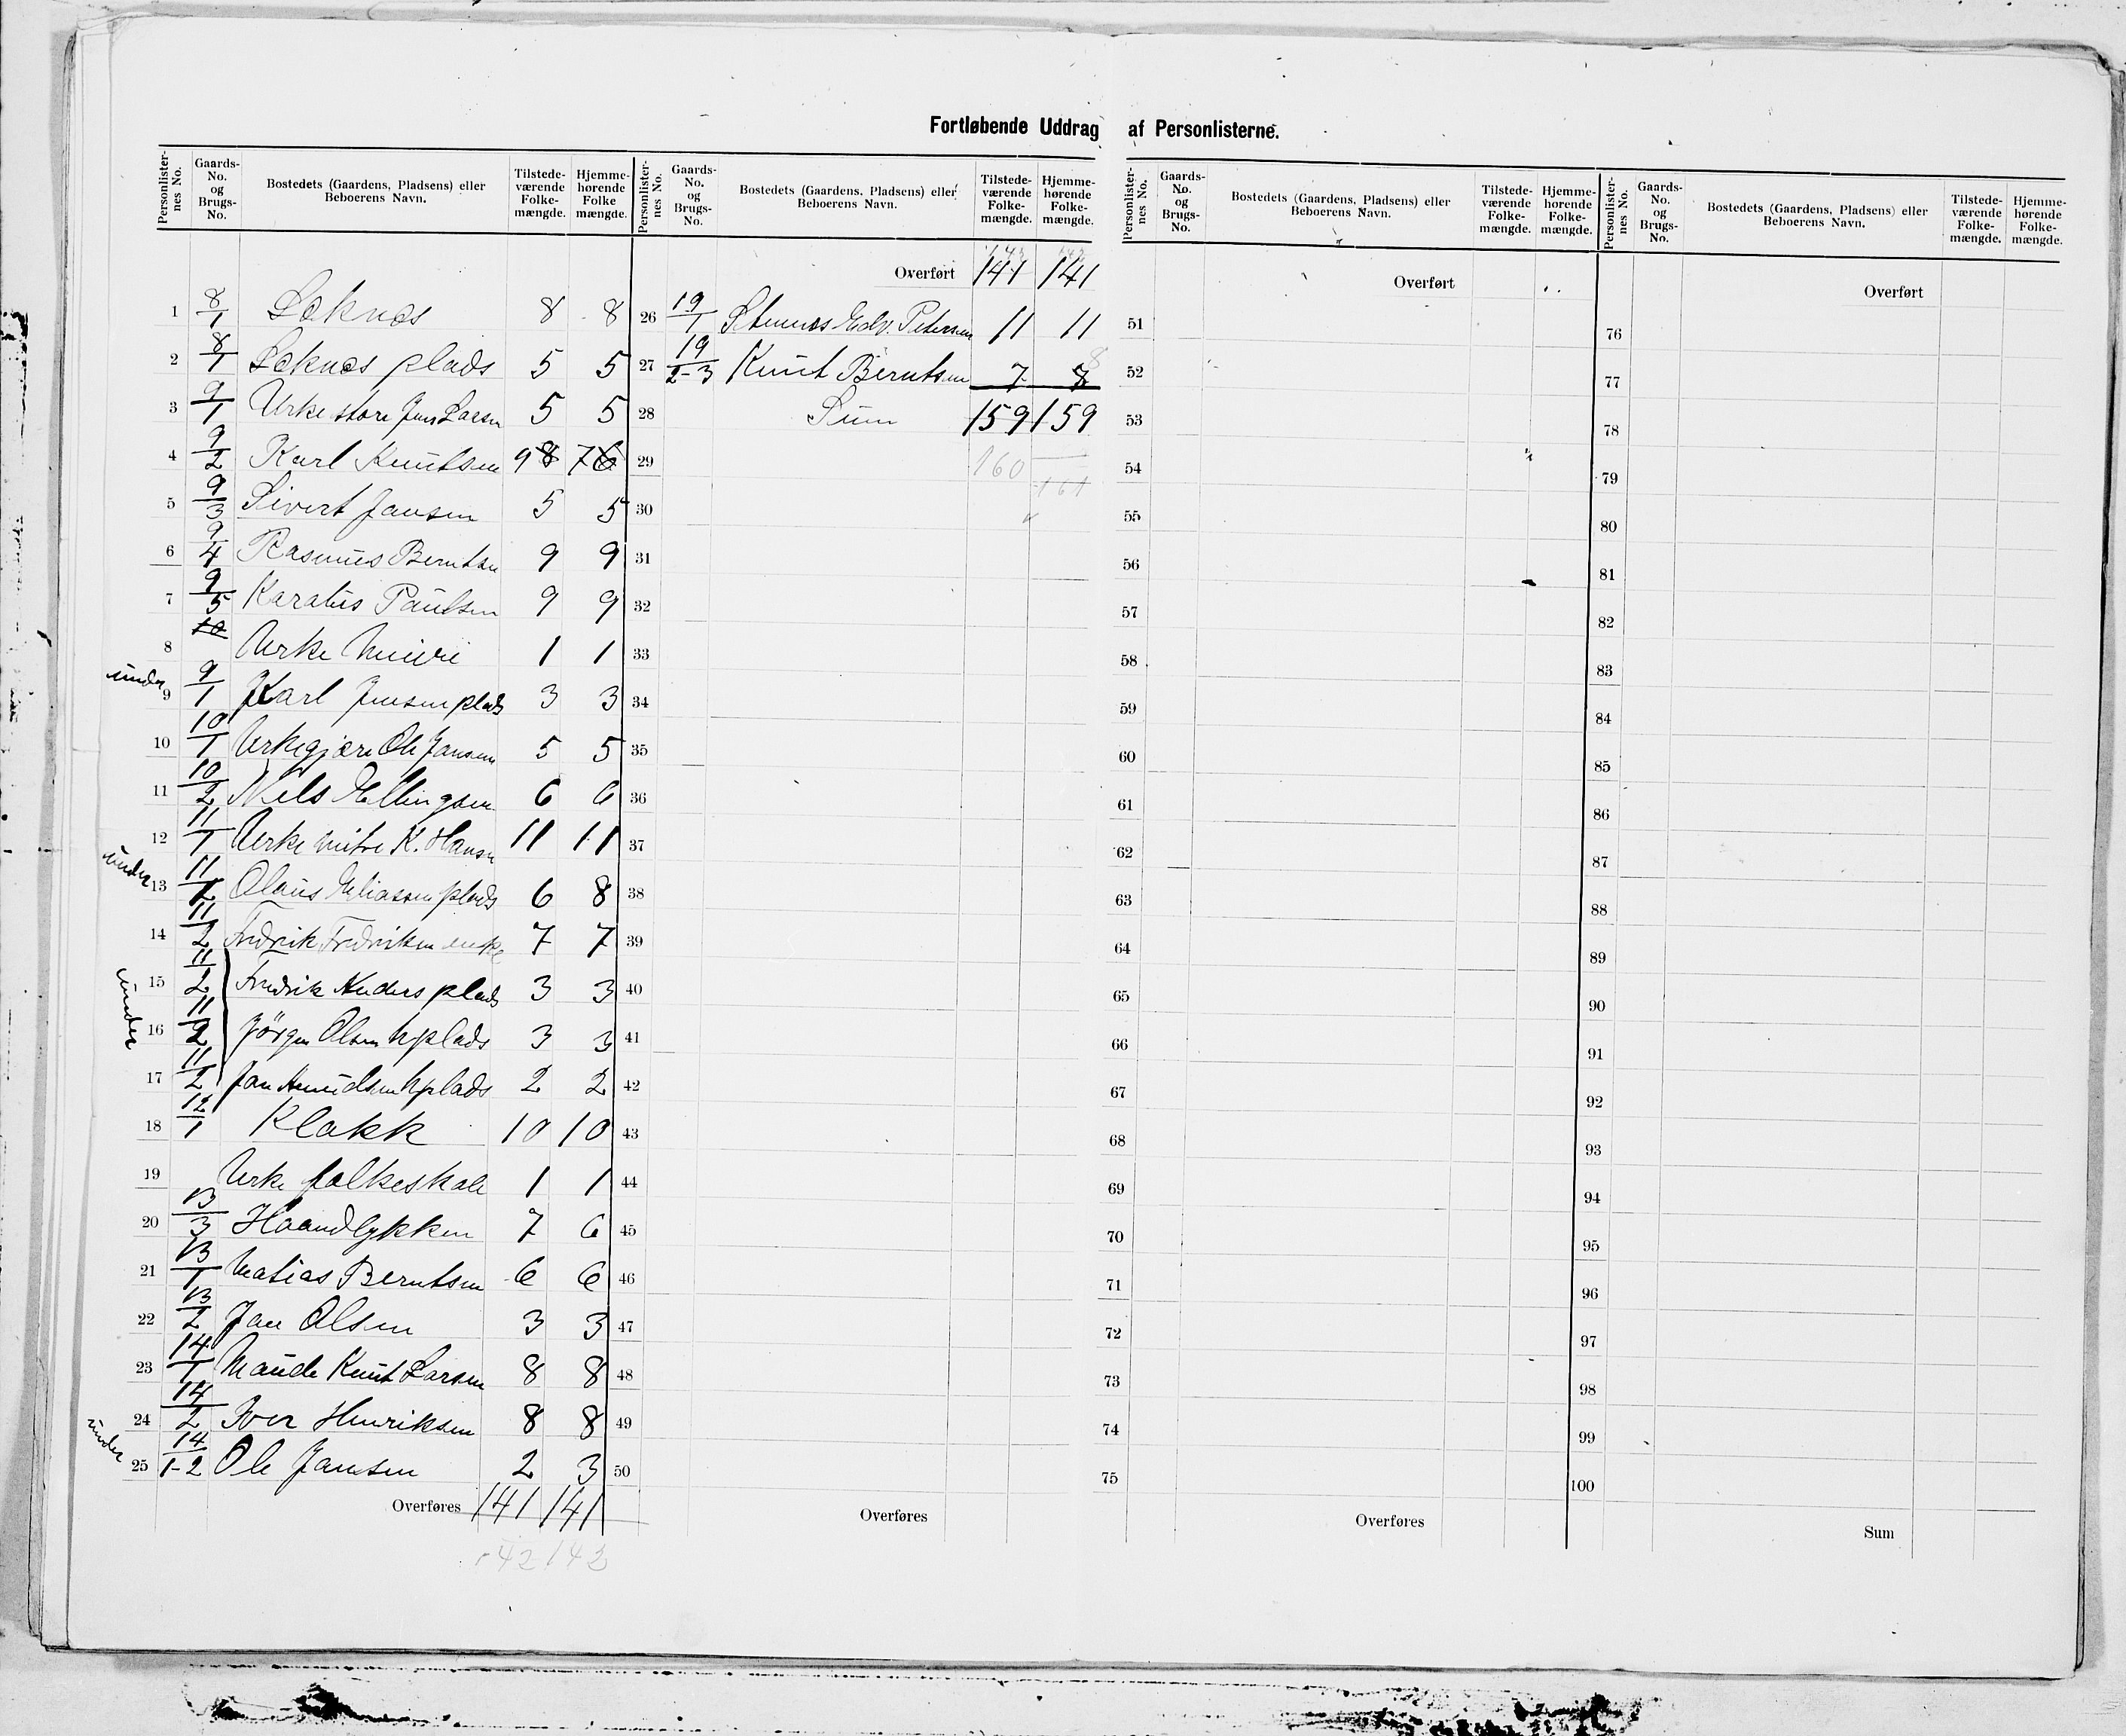 Fortløbende Uddrag af Personlisterne.
Personlister-nes No. Gaards-No. og Brugs-No. Bostedets (Gaardens, Pladsens) eller Beboerens Navn. Tilstede-værende Folke-mængde. Hjemme-hørende Folke mængde.
1 8/1 Leknes 8 8
2 8/1 Leknes plads 5 5
3 9/1 Urke store Jens Larsen 5 5
4 9/2 Karl Knutsen 9 8 7 6
5 9/3 Sivert Jansen 5 5
6 9/4 Rasmus Berntsen 9 9
7 9/5 Karalus Paulsen 9 9
8 10 Urke 1 1
under 9 9/1 Karl Jensen plads 3 3
10 10/1 Urkegjære Ole Jansen 5 5
11 10/2 Nils Ellingsen 6 6
12 11/1 Urke mitre K. Hansen 11 11
under 13 11/2 Olaus Eliassen plads 6 8
14 11/2 Fredrik Fredriksen enke 7 7
under 15 11/2 Fredrik Anders plads 3 3
16 11/2 Jörgen Olsen hplads 3 3
17 11/2 Jan Amundsen hplads 2 2
18 12/1 Klokk 10 10
19 Urke folkeskole 1 1
20 13/3 Haandlykken 7 6
21 13/1 Matias Berntsen 6 6
22 13/2 Jan Olsen 3 3
23 14/1 Maude Knut Larsen 8 8
24 14/2 Iver Henriksen 8 8
under 25 14/1-2 Ole Jansen 2 3
Overføres 141 141
142 142
Personlister-nes No. Gaards-No. og Brugs-No. Bostedets (Gaardens, Pladsens) eller Beboerens Navn. Tilstede-værende Folke-mængde. Hjemme-hørende Folke-mængde.
Overført 141 141
26 19/1 Stennes Edv. Petersen 11 11
27 19/2-3 Knut Berntsen 7 7 8
28 Sum 159 159
29 160
161
30
31
32
33
34
35
36
37
38
39
40
41
42
43
44
45
46
47
48
49
50
Overføres
Personlister-nes No. Gaards-No. og Brugs-No. Bostedets (Gaardens, Pladsens) eller Beboerens Navn. Tilstede-værende Folke-mængde. Hjemme-hørende Folke-mængde.
Overført
51
52
53
54
55
56
57
58
59
60
61
62
63
64
65
66
67
68
69
70
71
72
73
74
75
Overføres
Personlister-nes No. Gaards-No. og Brugs-No. Bostedets (Gaardens, Pladsens) eller Beboerens Navn. Tilstede-værende Folke-mængde. Hjemme-hørende Folke-mængde.
Overført
76
77
78
79
80
81
82
83
84
85
86
87
88
89
90
91
92
93
94
95
96
97
98
99
100
Sum